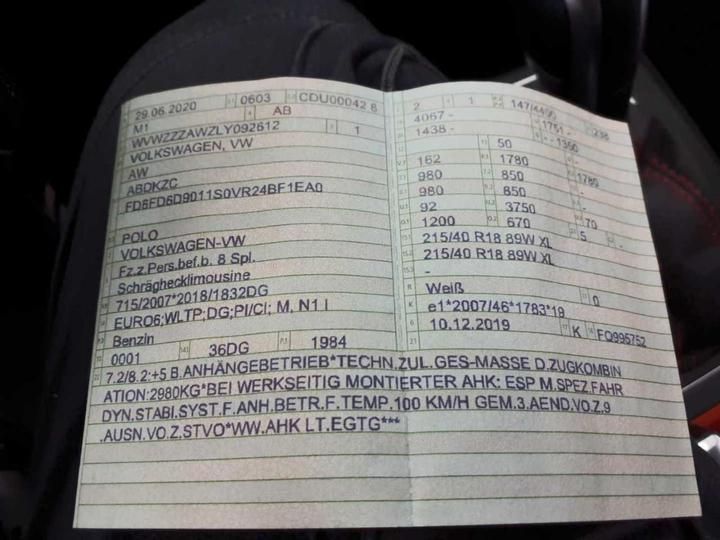 29.06.2020 0603 CDU00042 8
M1 AB
WVWZZZAWZLY092612 1
VOLKSWAGEN, VW
AW
ABDKZC
FD8FD6D9011S0VR24BF1EA0
POLO
VOLKSWAGEN-VW
Fz.z.Pers.bef.b. 8 Spl.
Schräghecklimousine
715/2007*2018/1832DG
EURO6;WLTP;DG;PI/CI; M, N1 I
Benzin
0001 36DG 1984
2 1 147/4400 238
4067 - 1751 -
1438 - - 1360
50
162 1780 1780
980 850
980 850 -
92 3750 -
1200 670 70
215/40 R18 89W XL 5 -
215/40 R18 89W XL
-
Weiß 0
e1*2007/46*1783*19
10.12.2019 K FQ995752
7.2/8.2:+5 B.ANHÄNGEBETRIEB*TECHN.ZUL.GES-MASSE D.ZUGKOMBIN
ATION:2980KG*BEI WERKSEITIG MONTIERTER AHK: ESP M.SPEZ.FAHR
DYN.STABI.SYST.F.ANH.BETR.F.TEMP.100 KM/H GEM.3.AEND.VO.Z.9
.AUSN.VO.Z.STVO*WW.AHK LT.EGTG***